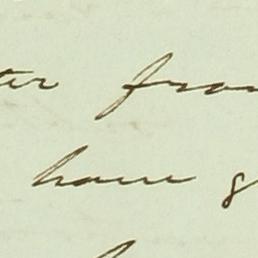 ter from
have g